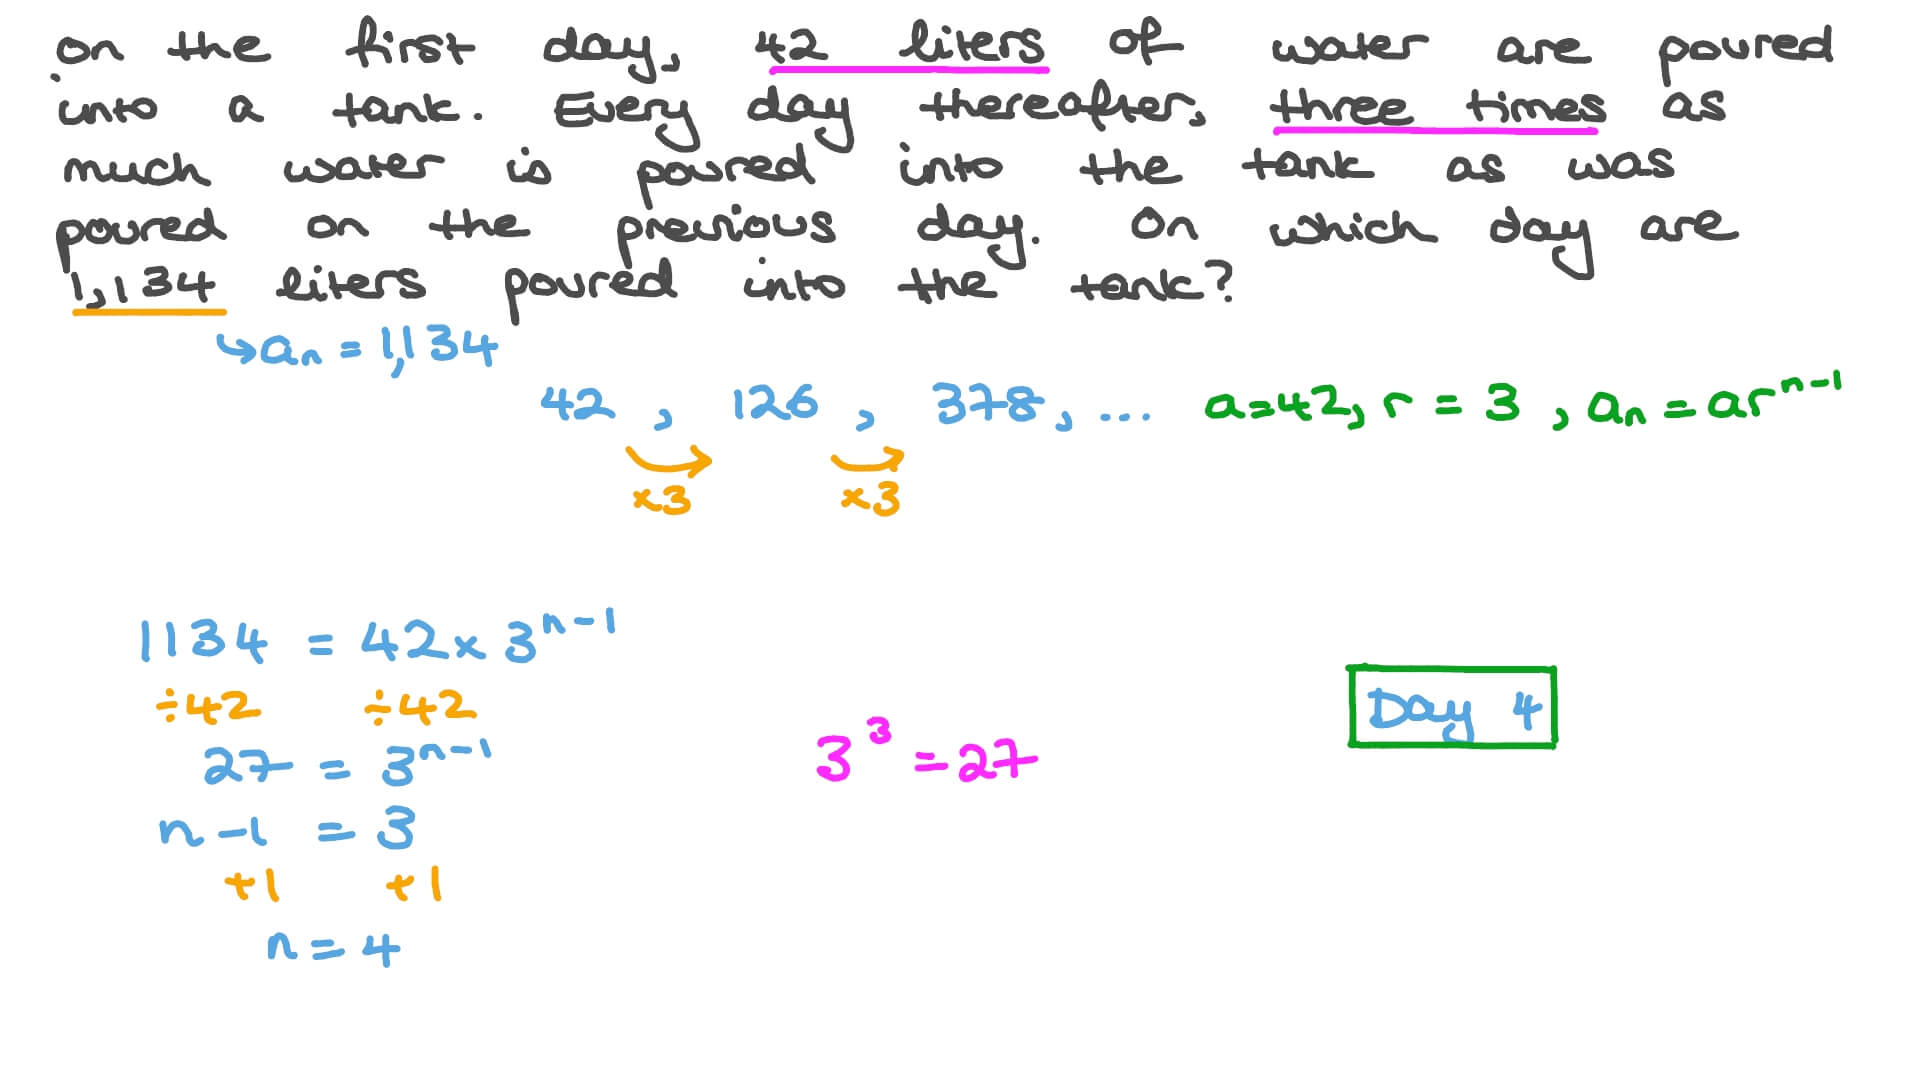 on the first day, 42 liters of water are poured
into a tank. Every day thereafter, three times as
much water is poured into the tank as was
poured on the previous day. On which day are
1,134 liters poured into the tank?
↳aₙ = 1,134
42 , 126 , 378, ... a=42, r = 3 , aₙ = arⁿ⁻¹
×3 ×3
1134 = 42 × 3ⁿ⁻¹
÷42 ÷42
27 = 3ⁿ⁻¹
3³ = 27
Day 4
n - 1 = 3
+1 +1
n = 4